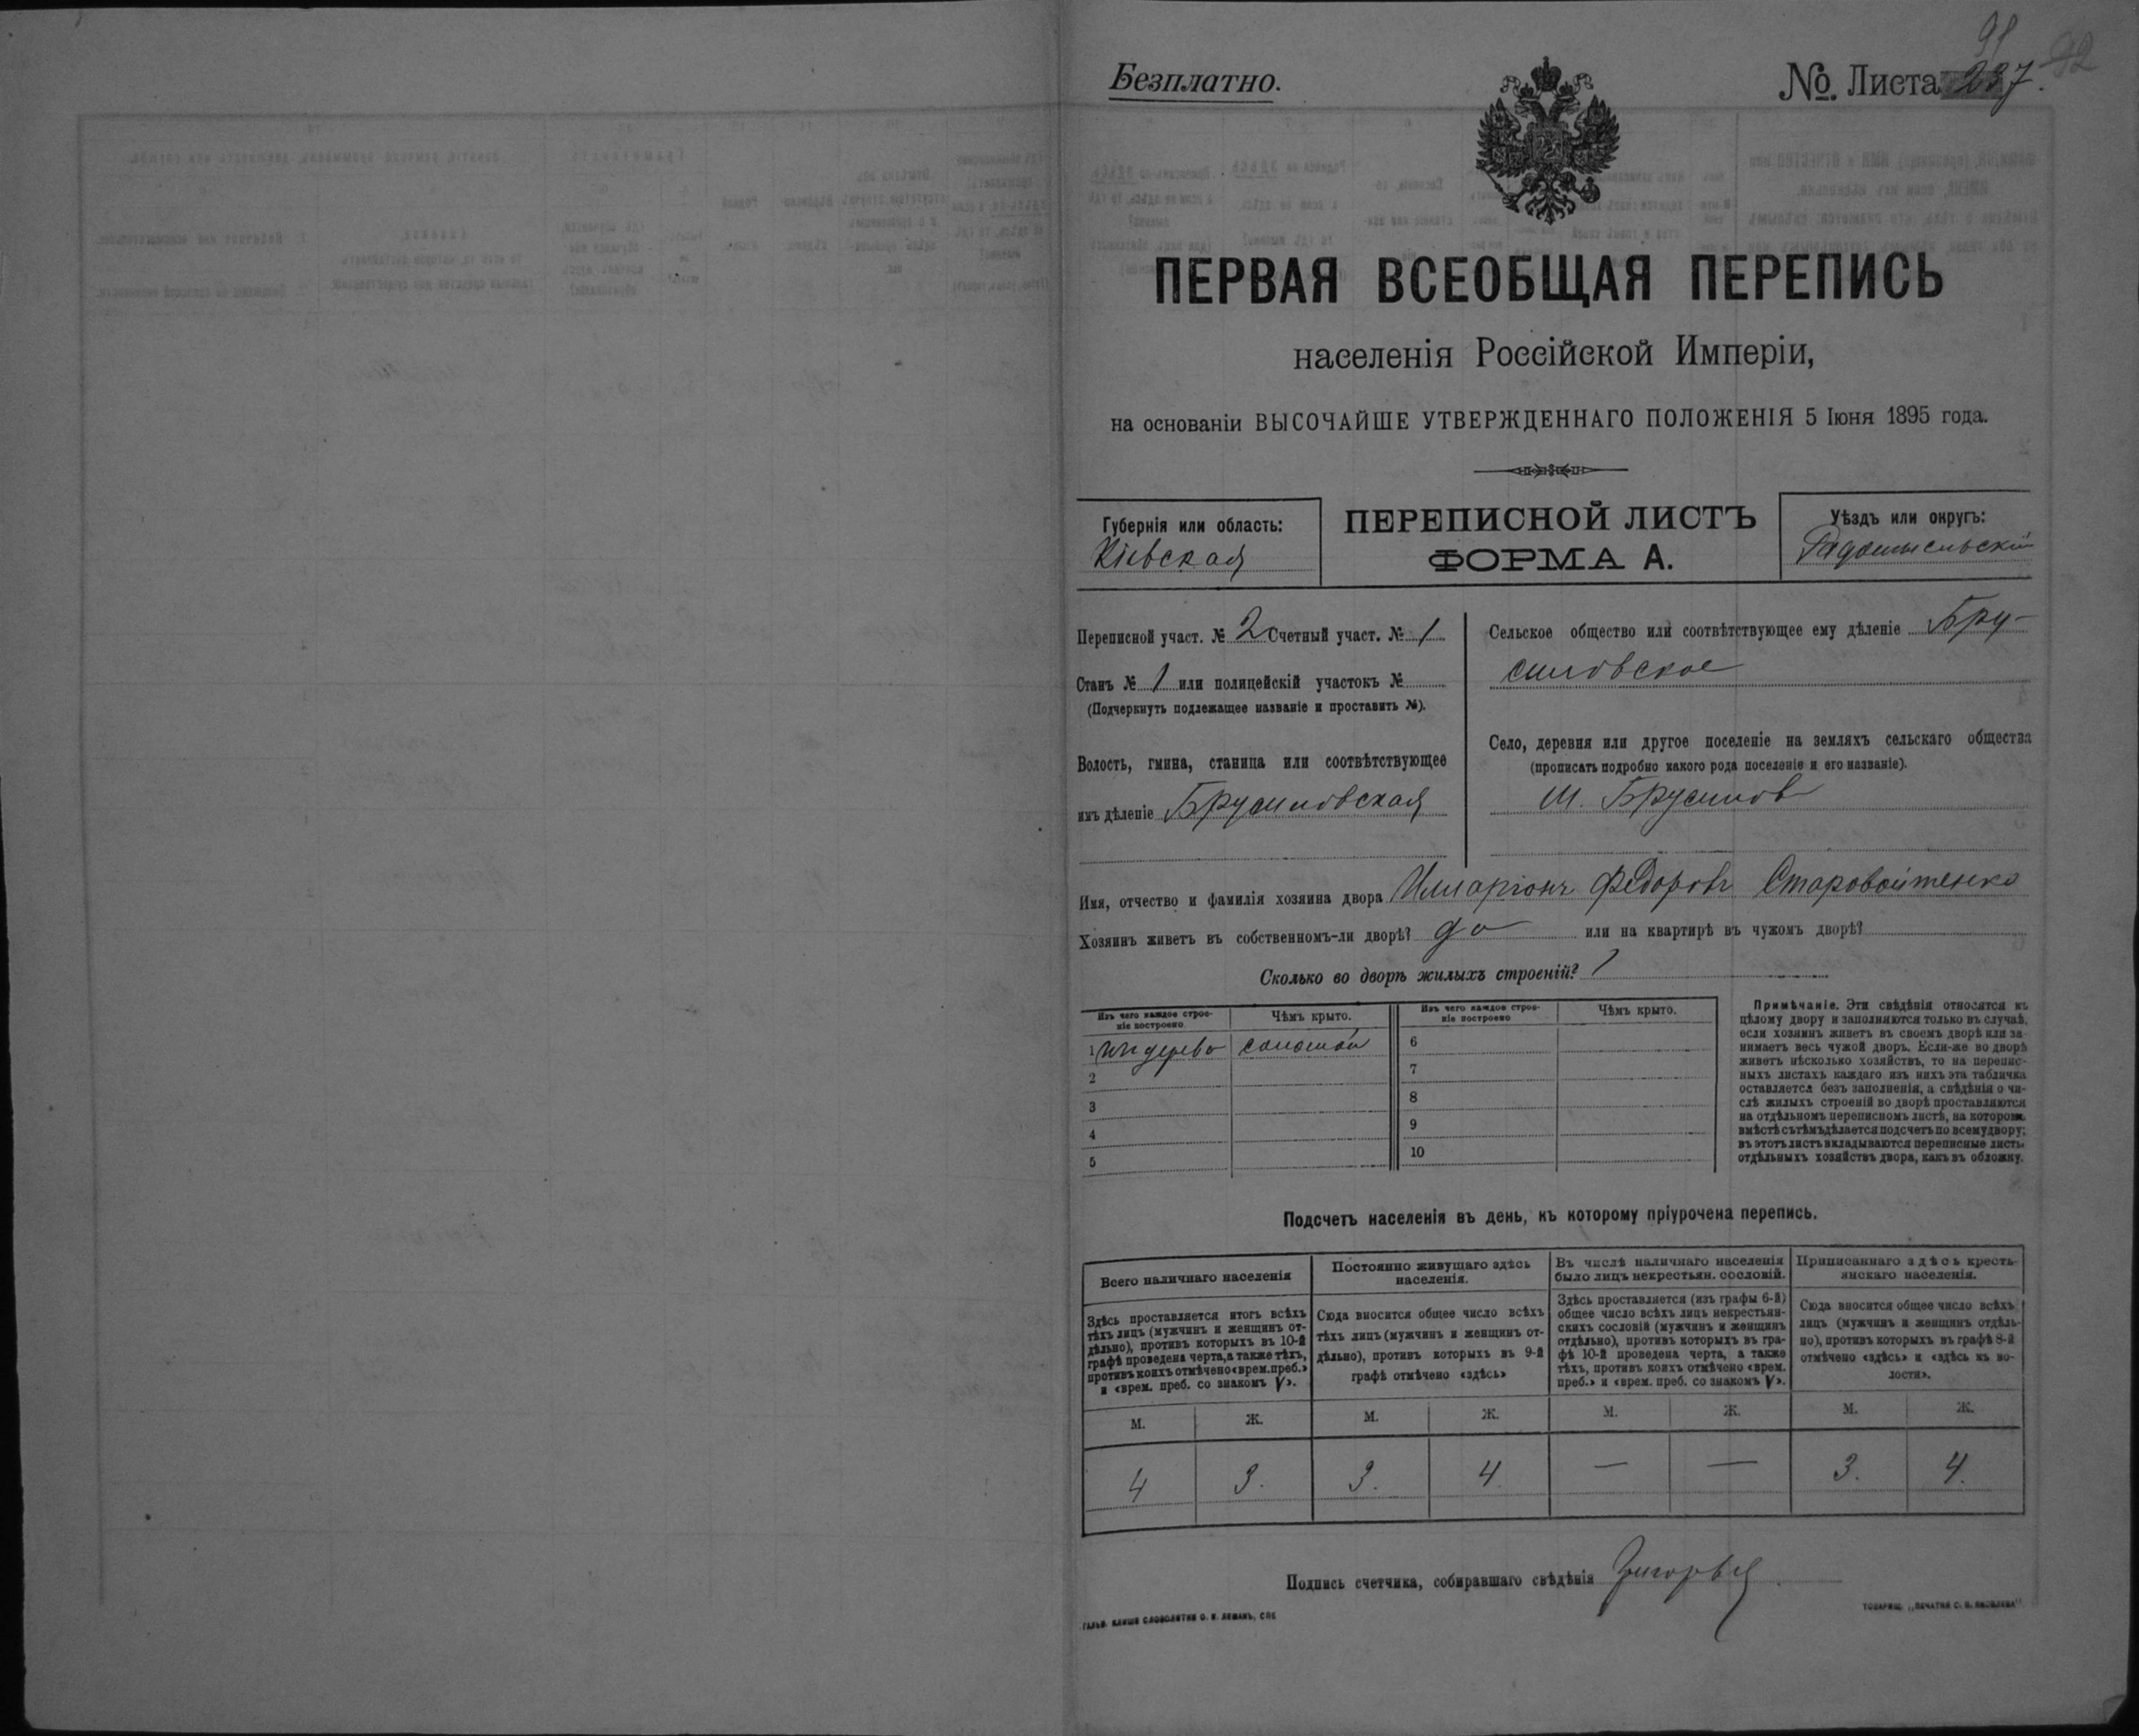 91
92
Безплатно.
№ Листа 237.
ПЕРВАЯ ВСЕОБЩАЯ ПЕРЕПИСЬ
населенія Россійской Имперіи,
на основаніи ВЫСОЧАЙШЕ УТВЕРЖДЕННАГО ПОЛОЖЕНІЯ 5 Іюня 1895 года.
Губернія или область:
Кіевская
ПЕРЕПИСНОЙ ЛИСТЪ
ФОРМА А.
Уѣздъ или округъ:
Радомысльскій
Переписной участ. № 2 Счетный участ. № 1
Станъ № 1 или полицейскій участокъ №
(Подчеркнуть подлежащее названіе и проставить №).
Волость, гмина, станица или соотвѣтствующее
имъ дѣленіе Брусиловская
Сельское общество или соотвѣтствующее ему дѣленіе Бру-
силовское
Село, деревня или другое поселеніе на земляхъ сельскаго общества
(прописать подробно какого рода поселеніе и его названіе).
м. Брусилов
Имя, отчество и фамилія хозяина двора Илларіонъ Федоровъ Старовойтенко
Хозяинъ живетъ въ собственномъ-ли дворѣ? да или на квартирѣ въ чужомъ дворѣ?
Сколько во дворѣ жилыхъ строеній? 1
Изъ чего каждое строе-
ніе построено.
Чѣмъ крыто.
Изъ чего каждое строе-
ніе построено
Чѣмъ крыто.
1 изъ дерева соломой
2
3
4
5
6
7
8
9
10
Примѣчаніе. Эти свѣдѣнія относятся къ
цѣлому двору и заполняются только въ случаѣ,
если хозяинъ живетъ въ своемъ дворѣ или за-
нимаетъ весь чужой дворъ. Если-же во дворѣ
живетъ нѣсколько хозяйствъ, то на перепис-
ныхъ листахъ каждаго изъ нихъ эта табличка
оставляется безъ заполненія, а свѣдѣнія о чи-
слѣ жилыхъ строеній во дворѣ проставляются
на отдѣльномъ переписномъ листѣ, на которомъ
вмѣстѣ съ тѣмъ дѣлается подсчетъ по всему двору;
въ этотъ листъ вкладываются переписные листы
отдѣльныхъ хозяйствъ двора, какъ въ обложку.
Подсчетъ населенія въ день, къ которому пріурочена перепись.
Всего наличнаго населенія
Здѣсь проставляется итогъ всѣхъ
тѣхъ лицъ (мужчинъ и женщинъ от-
дѣльно), противъ которыхъ въ 10-й
графѣ проведена черта, а также тѣхъ,
противъ коихъ отмѣчено «врем. преб.»
и «врем. преб. со знакомъ V».
Постоянно живущаго здѣсь
населенія.
Сюда вносится общее число всѣхъ
тѣхъ лицъ (мужчинъ и женщинъ от-
дѣльно), противъ которыхъ въ 9-й
графѣ отмѣчено «здѣсь»
Въ числѣ наличнаго населенія
было лицъ некрестьян. сословій.
Здѣсь проставляется (изъ графы 6-й)
общее число всѣхъ лицъ некрестьян-
скихъ сословій (мужчинъ и женщинъ
отдѣльно), противъ которыхъ въ гра-
фѣ 10-й проведена черта, а также
тѣхъ, противъ коихъ отмѣчено «врем.
преб.» и «врем. преб. со знакомъ V».
Приписаннаго здѣсь кресть-
янскаго населенія.
Сюда вносится общее число всѣхъ
лицъ (мужчинъ и женщинъ отдѣль-
но), противъ которыхъ въ графѣ 8-й
отмѣчено «здѣсь» и «здѣсь къ во-
лости».
М. Ж. М. Ж. М. Ж. М. Ж.
4 3. 3. 4. — — 3. 4.
Подпись счетчика, собиравшаго свѣдѣнія
ГАЛЬВ. КЛИШЕ СЛОВОЛИТНИ О. И. ЛЕМАНЪ, СПБ
ТОВАРИЩ. „ПЕЧАТНЯ С. П. ЯКОВЛЕВА"